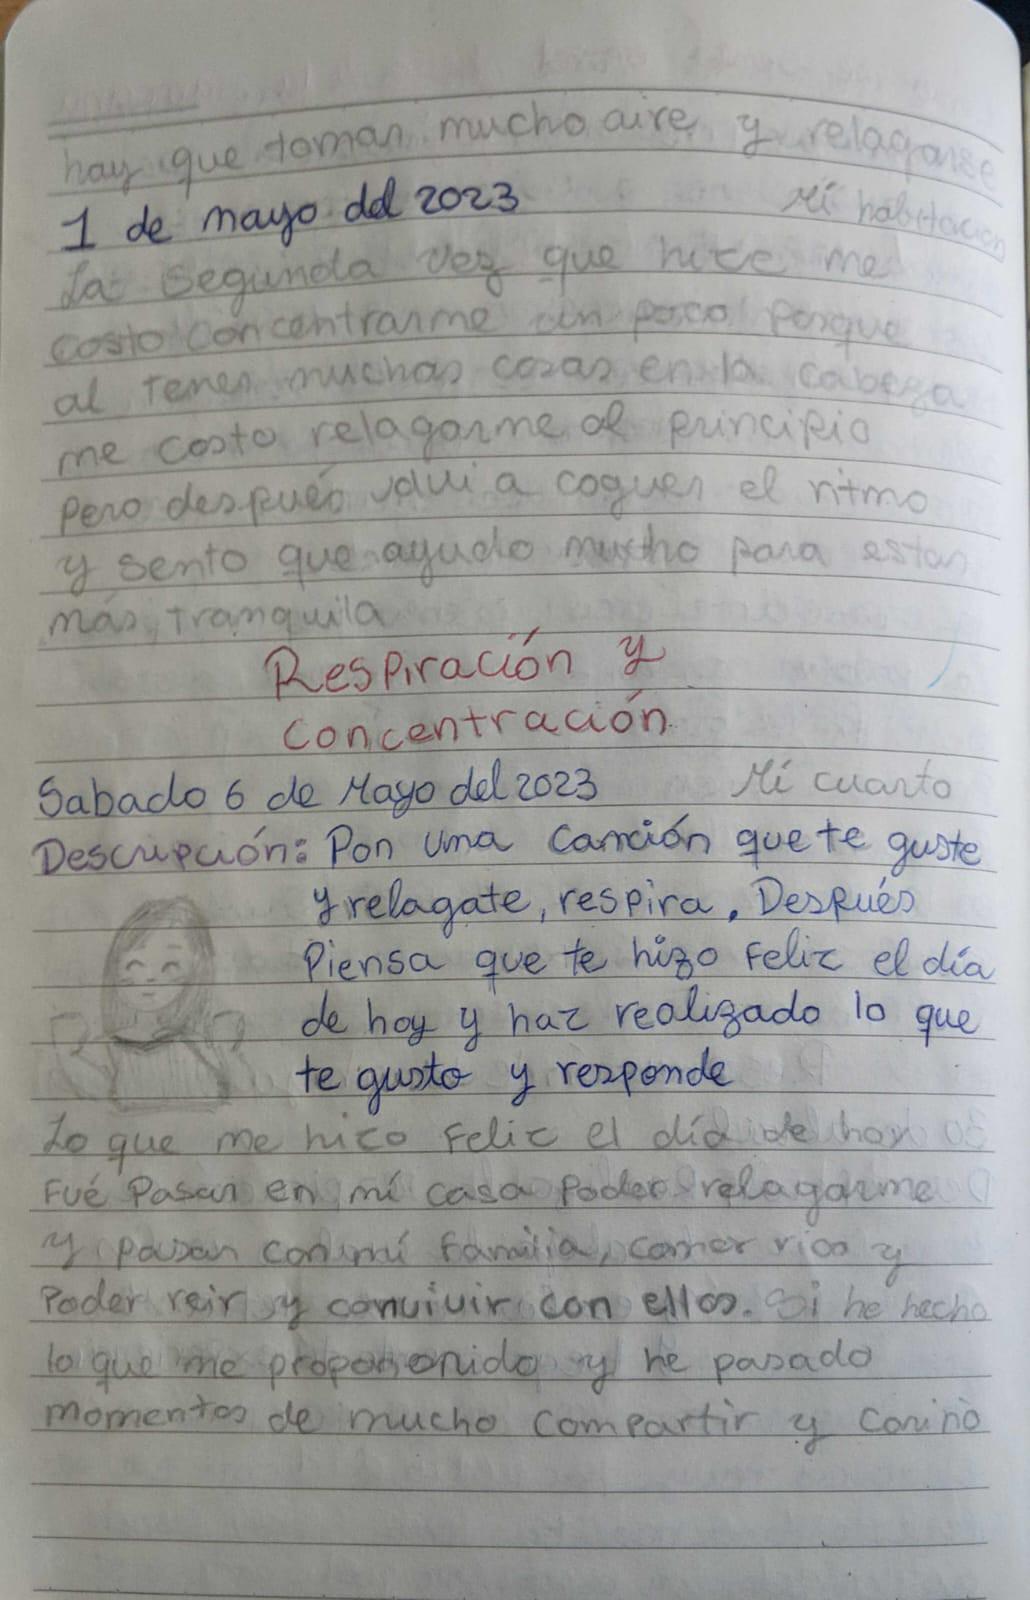 hay que tomar mucho aire y relagarse
1 de mayo del 2023 Mi habitación
La segunda vez que hice me
costo concentrarme un poco porque
al tener muchas cosas en la cabeza
me costo relagarme al principio
Pero después volvi a coguer el ritmo
y sento que ayudo mucho para estar
más tranquila
Respiración y
concentración
Sabado 6 de Mayo del 2023 Mi cuarto
Descripción: Pon una canción que te guste
y relagate, respira. Después
Piensa que te hizo Feliz el día
de hoy y haz realizado lo que
te gusto y responde
Lo que me hico Feliz el día de hoy
Fué Pasar en mí casa Poder relagarme
y pasar con mí familia, comer rico y
Poder reir y convivir con ellos. Si he hecho
lo que me y he pasado
momentos de mucho compartir y carino